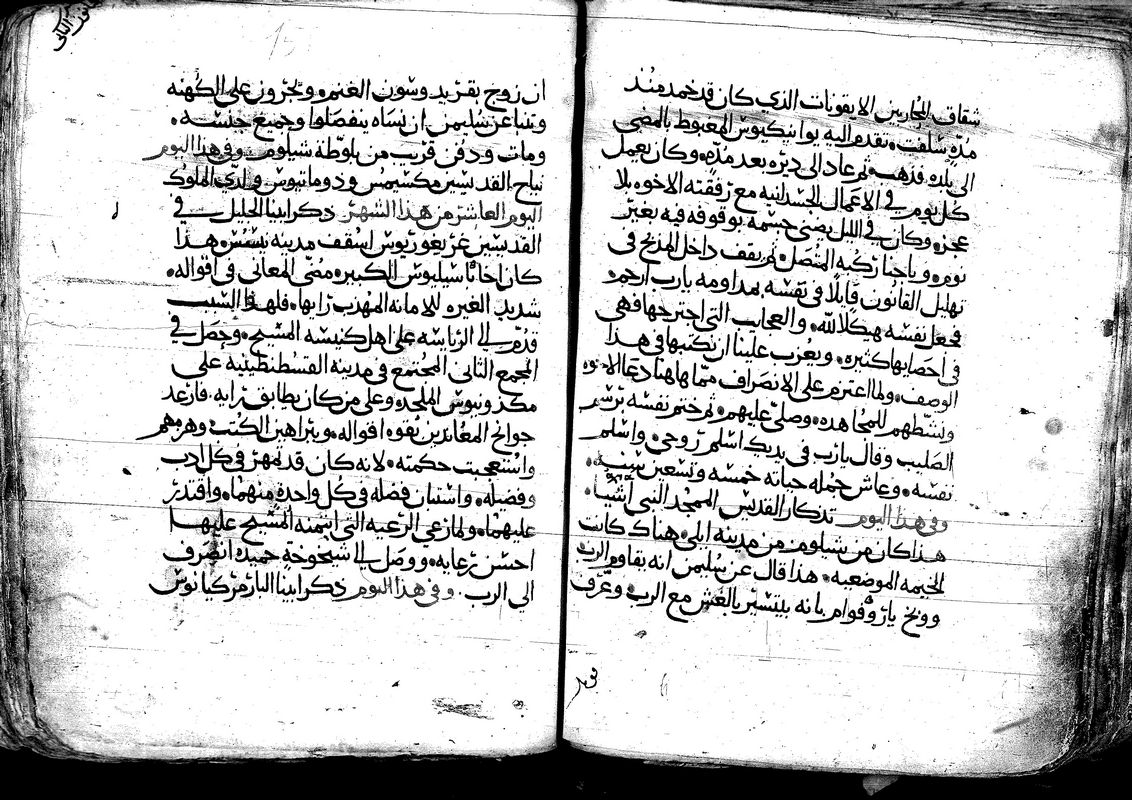 شقاق المحاربين الايقونات الذي كان قد خمد منذ
مدة سلفت. تقدم اليه يوانيكيوس المغبوط بالمضي
الى بلده فذهب. ثم عاد الى ديره بعد مدة. وكان يعمل
كل يوم في الاعمال الجسدانية مع رفقته الاخوه بلا
عجز. وكان في الليل يضني جسمه بوقوفه فيه بغير
نوم. و باحنا ركبه المتصل. ثم يقف داخل المذبح في
تهليل القانون قايلا في نفسه بمداومه يارب ارحم.
فجعل نفسه هيكلا لله. والعجايب التي اجترحها فهي
في احصايها كثيره. ويعزب علينا ان نكتبها في هذا
الوصف. ولما اعتزم على الانصراف مما هاهنا دعا الاخوه
ونشطهم للمجاهده. وصلى عليهم. ثم ختم نفسه برسم
الصليب وقال يارب في يديك اسلم روحي. واسلم
نفسه. وعاش جمله حياته خمسه وتسعين سنه.
وفي هذا اليوم تذكار القديس الممجد النبي اشيا.
هذا كان من شيلوم من مدينه ايلي. هناك كانت
الخيمه الموضعيه. هذا قال عن سليمن انه يقاوم الرب
ووبخ ياروفوام بانه يتسير بالغش مع الرب وعرف
ان زوج بقر يدوسون الغنم. ويجرون على الكهنه
وتنبا عن سليمن ان نساه ينفصلوا وجميع جنسه.
ومات ودفن قريب من بلوطة شيلوم. وفي هذا اليوم
نياح القديسين مكسيموس ودوماتيوس ولدي الملوك
اليوم العاشر من هذا الشهر ذكر ابينا الجليل في
القديسين غريغوريوس اسقف مدينه نسس. هذا
كان اخا باسيليوس الكبير. مضى المعاني في اقواله.
شديد الغيره للامانه المهذب رايها. فلهذا السبب
قدم الى الرئاسه على اهل كنيسه المسيح. وحصل في
المجمع الثاني المجتمع في مدينه القسطنطينيه على
مكدونيوس الملحد. وعلى من كان يطابق رايه. فارعد
جوانح المعاندين بقوه اقواله. وببراهين الكتب وهزمهم
واستعجبت حكمته. لانه كان قد مهر في كل ادب
وفضيله. واستبان فضله في كل واحده منهما. واقتدر
عليهما. ولما رعي الرعيه التي ائتمنه المسيح عليها
احسن رعايه. ووصل الى شيخوخة حميده انصرف
الى الرب. وفي هذا اليوم ذكر ابينا البار مركيانوس